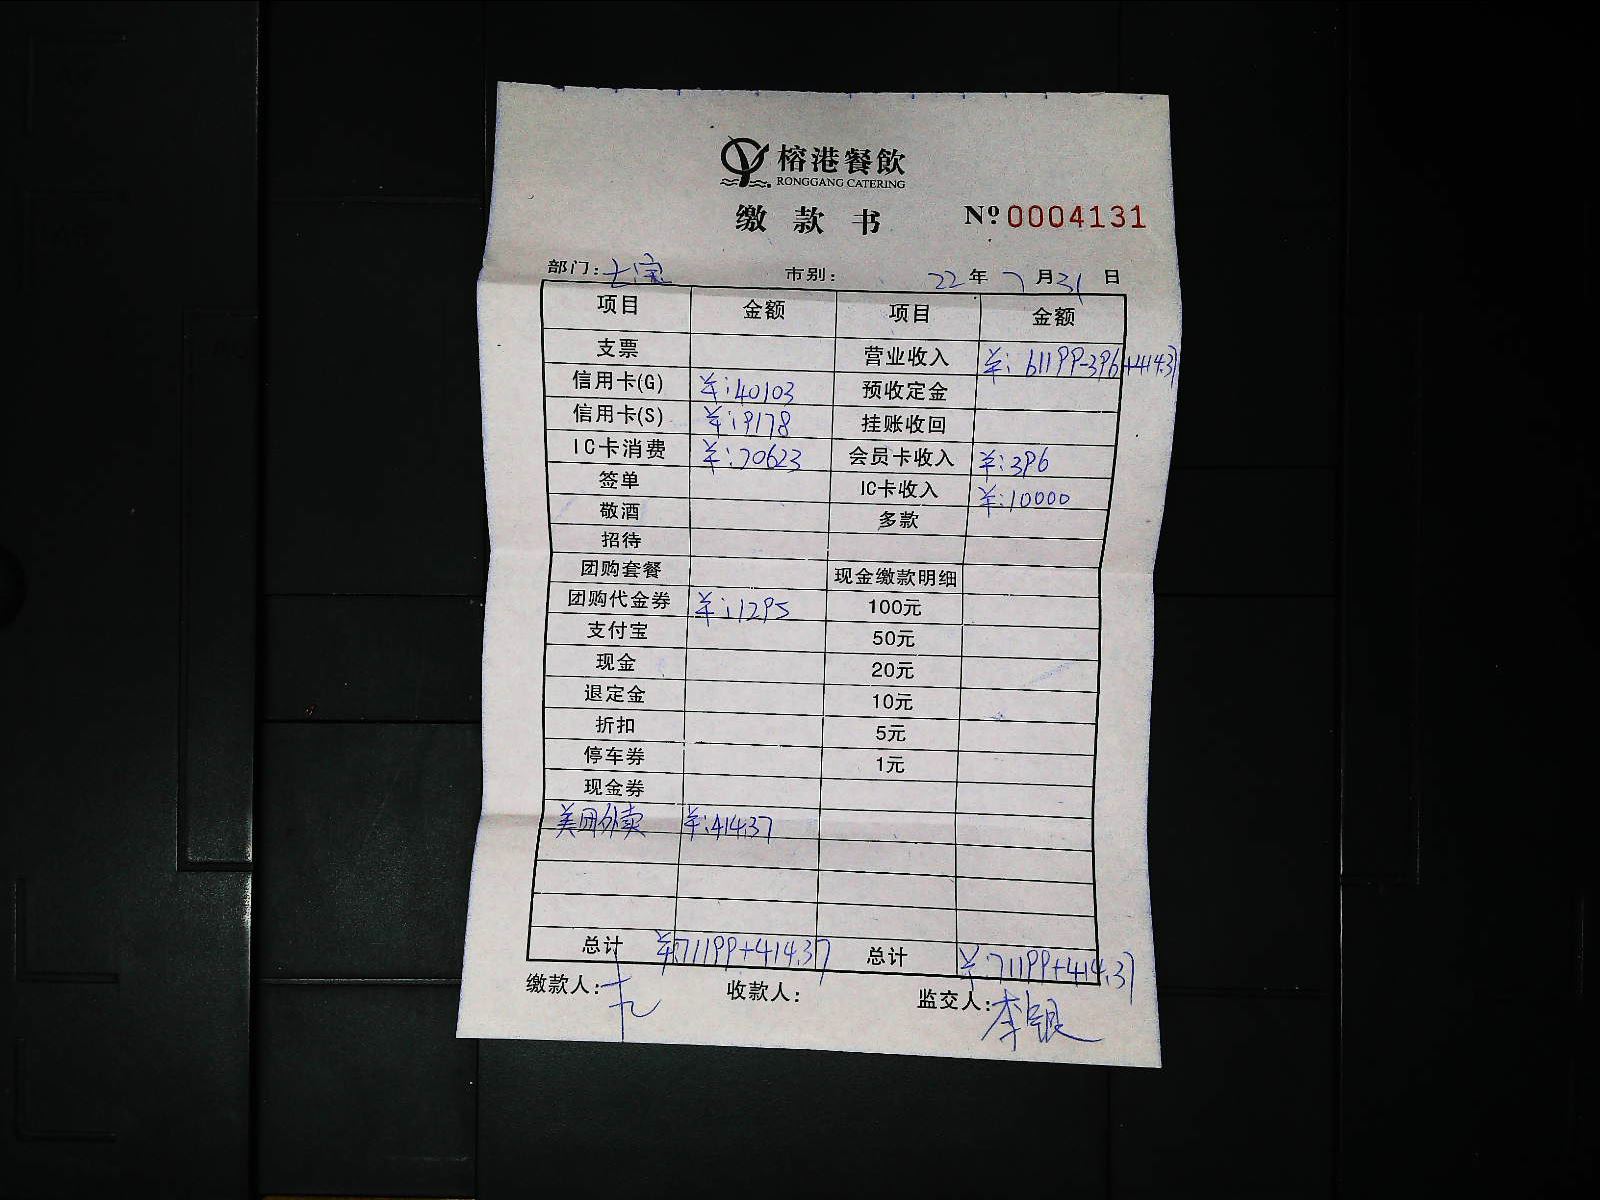 榕港餐飲
RONGGANG CATERING
缴款书 Nº 0004131
部门:七宝 市别: 22年7月31日
项目 金额 项目 金额
支票 营业收入 ¥:61199-396+414.37
信用卡(G) ¥:40103 预收定金
信用卡(S) ¥:9178 挂账收回
IC卡消费 ¥:20623 会员卡收入 ¥:396
签单 IC卡收入 ¥:10000
敬酒 多款
招待
团购套餐 现金缴款明细
团购代金券 ¥:1295 100元
支付宝 50元
现金 20元
退定金 10元
折扣 5元
停车券 1元
现金券
美团外卖 ¥:414.37
总计 ¥:71199+414.37 总计 ¥:71199+414.37
缴款人: 收款人: 监交人:李银